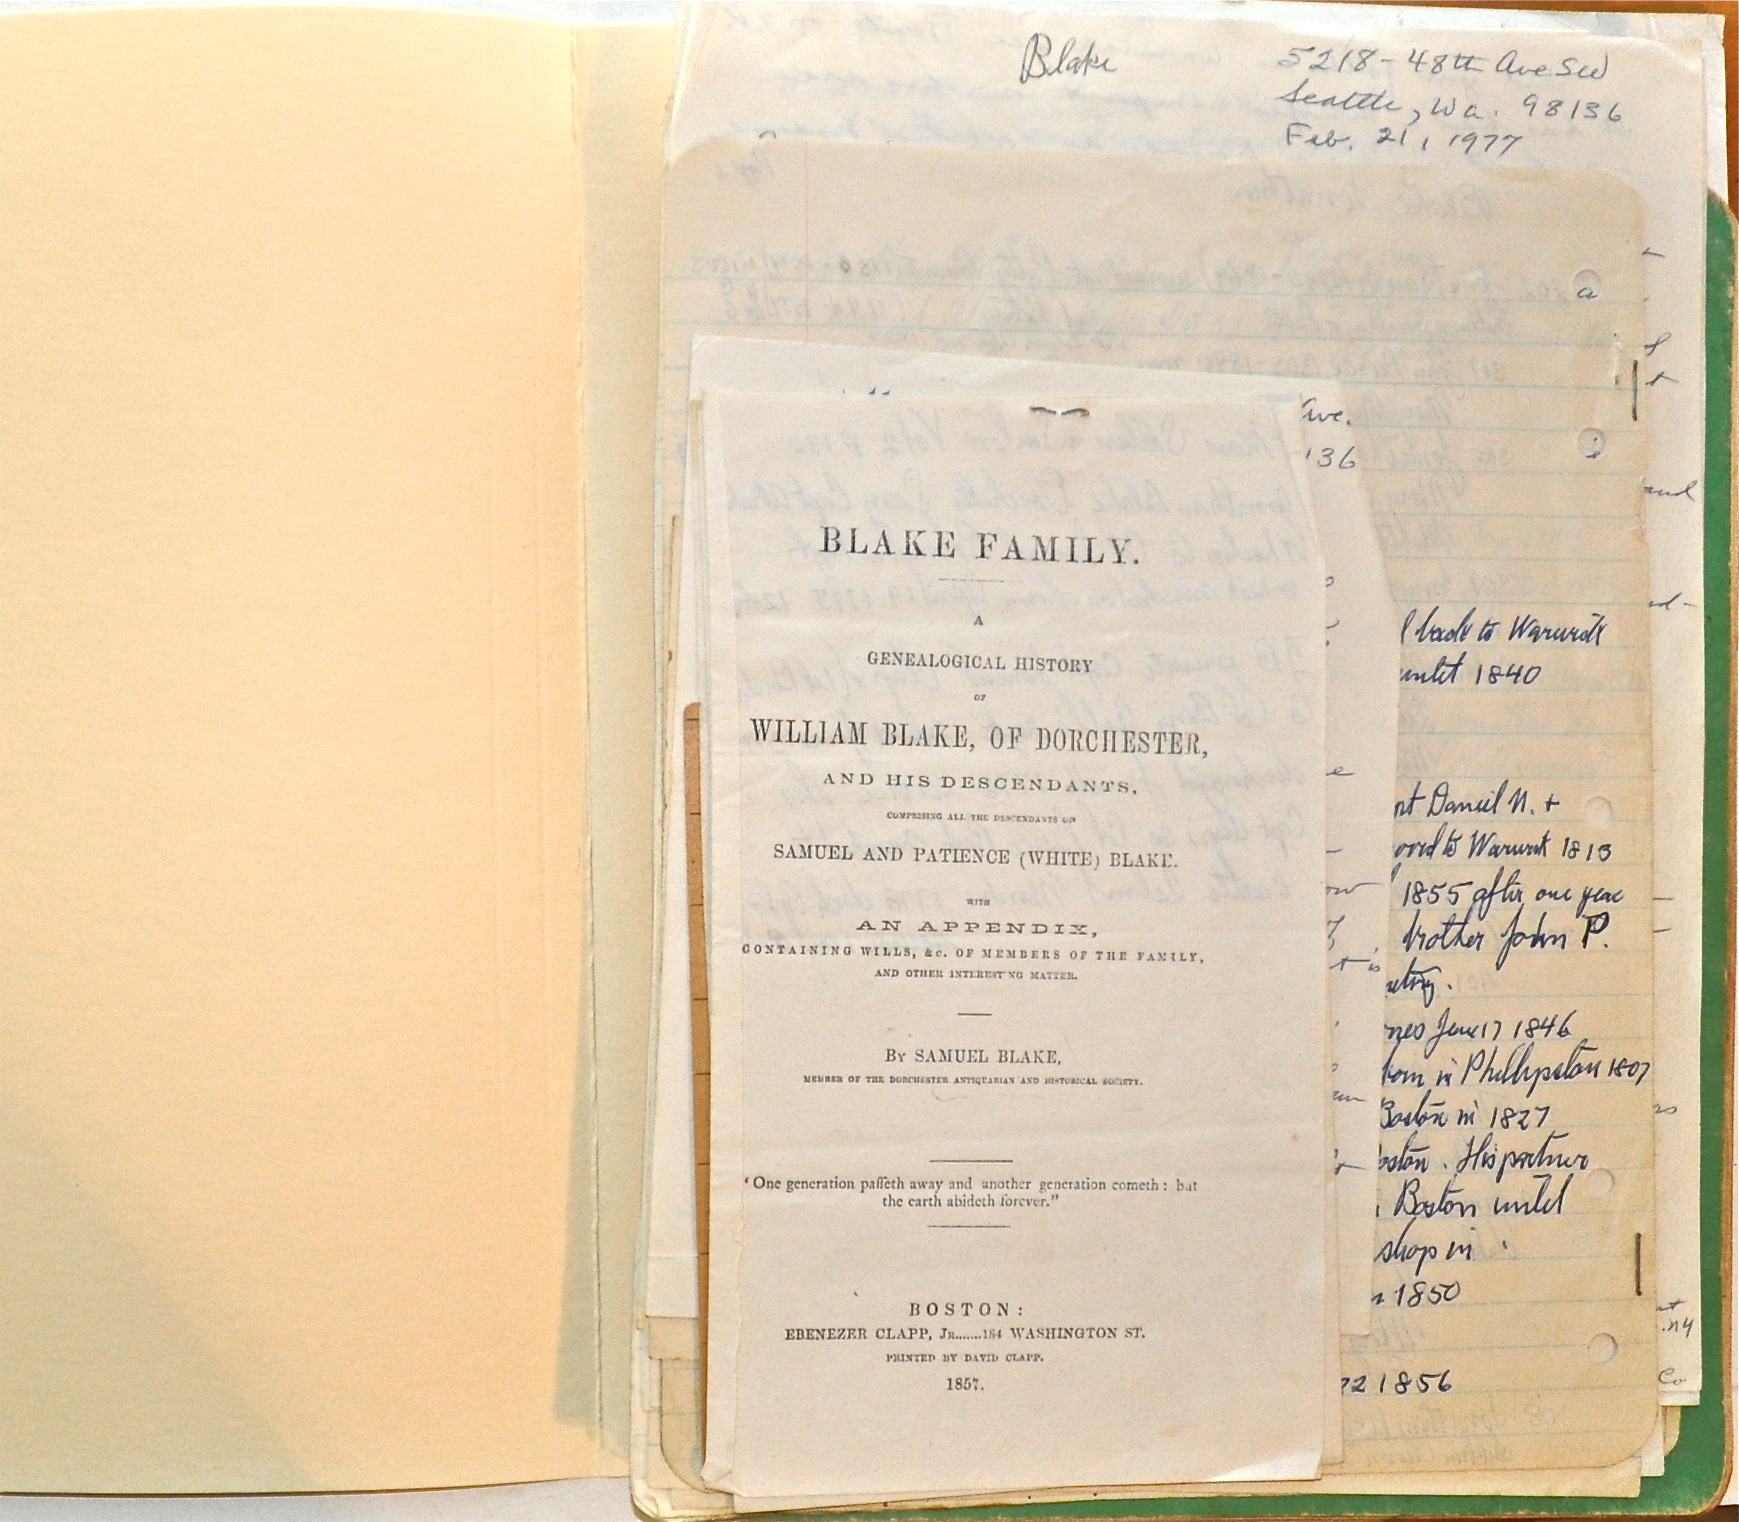 Blake
5218 - 48th Ave SW
Seattle, Wa. 98136
Feb. 21, 1977
a
Ave.
136
and
BLAKE FAMILY.
A
GENEALOGICAL HISTORY
OF
WILLIAM BLAKE, OF DORCHESTER,
AND HIS DESCENDANTS,
COMPRISING ALL THE DESCENDANTS OF
SAMUEL AND PATIENCE (WHITE) BLAKE.
WITH
AN APPENDIX,
CONTAINING WILLS, &c. OF MEMBERS OF THE FAMILY,
AND OTHER INTERESTING MATTER.
By SAMUEL BLAKE,
MEMBER OF THE DORCHESTER ANTIQUARIAN AND HISTORICAL SOCIETY.
‘One generation paſſeth away and another generation cometh: but
the earth abideth forever.”
BOSTON:
EBENEZER CLAPP, Jr.......184 WASHINGTON ST.
PRINTED BY DAVID CLAPP.
1857.
back to Warwick
until 1840
Daniel N. +
to Warwick 1813
1855 after one year
brother John P.
June 17 1846
born in Phillipston 1807
Boston in 1827
His partner
Boston until
shop in
1850
22 1856
Co